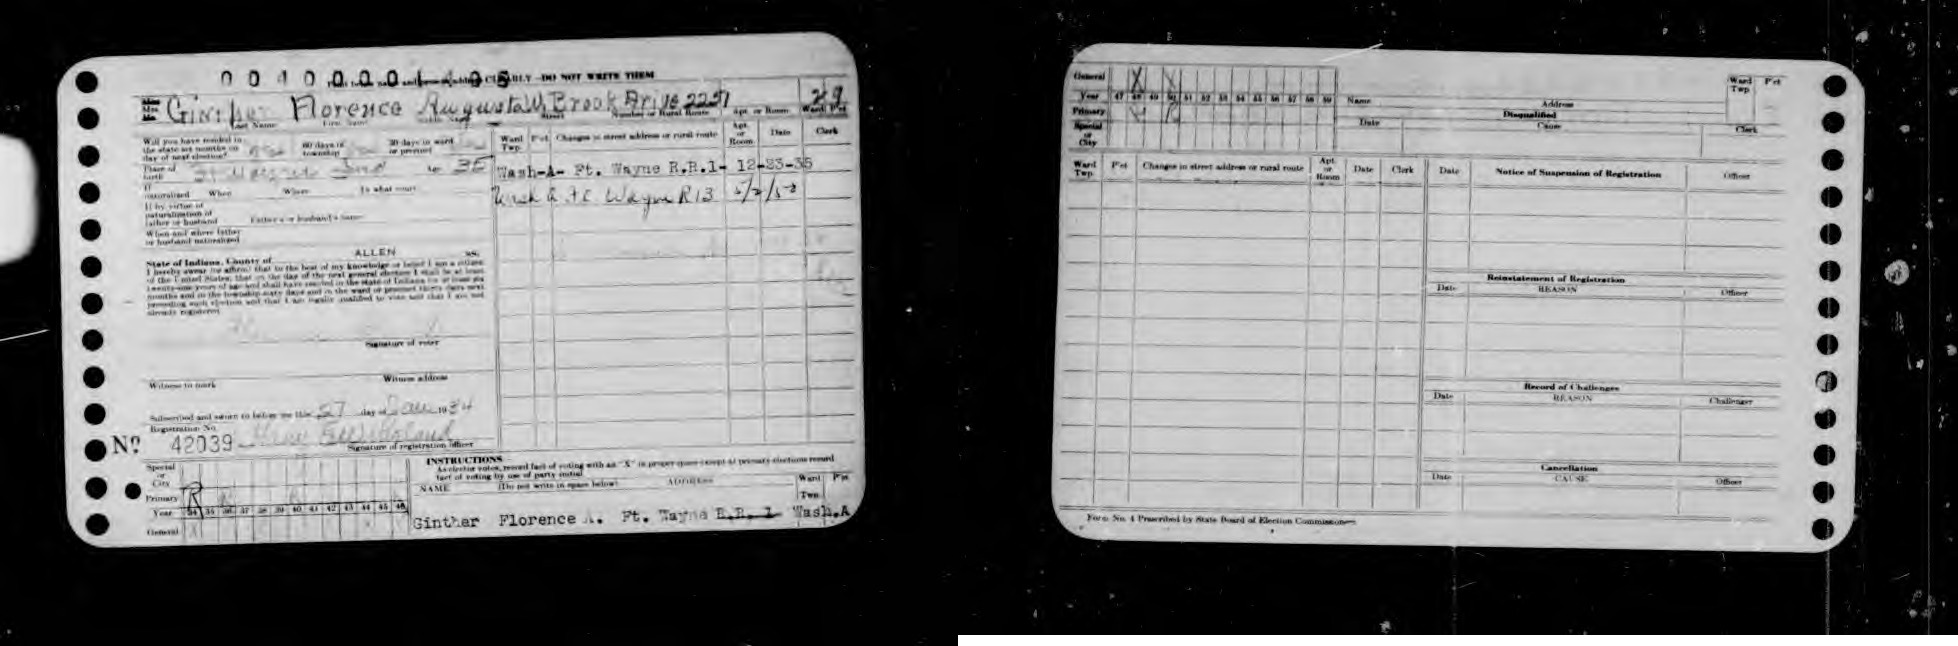 CLEARLY—DO NOT WRITE THEM
Ginther Florence Augusta W. Brook Drive 2251 29
Last Name First Name Street Number or Rural Route Apt. or Room Ward P'ct
Will you have resided in
the state six months on
day of next election? 60 days of
township 30 days in ward
or precinct
Place of
birth Ft Wayne Ind Age 35
If
naturalized When Where In what court
If by virtue of
naturalization of
father or husband Father's or husband's name
When and where father
or husband naturalized
State of Indiana, County of ALLEN ss:
I hereby swear (or affirm) that to the best of my knowledge or belief I am a citizen
of the United States; that on the day of the next general election I shall be at least
twenty-one years of age and shall have resided in the state of Indiana for at least six
months and in the township sixty days and in the ward or precinct thirty days next
preceding such election and that I am legally qualified to vote and that I am not
already registered.
Signature of voter
Witness to mark Witness address
Subscribed and sworn to before me this 27 day of Jan 1934
Registration No.
No. 42039
Signature of registration officer
Ward
Twp. P'ct Changes in street address or rural route Apt.
or
Room Date Clerk
Wash-A- Ft. Wayne R.R.1- 12-23-35
Wash A Ft Wayne R 13 5/2/50
Special
or
City
Primary R R R
Year 34 35 36 37 38 39 40 41 42 43 44 45 46
General
INSTRUCTIONS
As elector votes, record fact of voting with an "X" in proper space except at primary elections record
fact of voting by use of party initial.
NAME (Do not write in space below) ADDRESS Ward
Twp. P'ct
Ginther Florence A. Ft. Wayne R.R. 1 Wash.A
General X X
Year 47 48 49 50 51 52 53 54 55 56 57 58 59
Primary R
Special
or
City
Name Address Ward
Twp P'ct
Disqualified
Date Cause Clerk
Ward
Twp. P'ct Changes in street address or rural route Apt.
or
Room Date Clerk
Date Notice of Suspension of Registration Officer
Reinstatement of Registration
Date REASON Officer
Record of Challenges
Date REASON Challenger
Cancellation
Date CAUSE Officer
Form No. 4 Prescribed by State Board of Election Commissioners